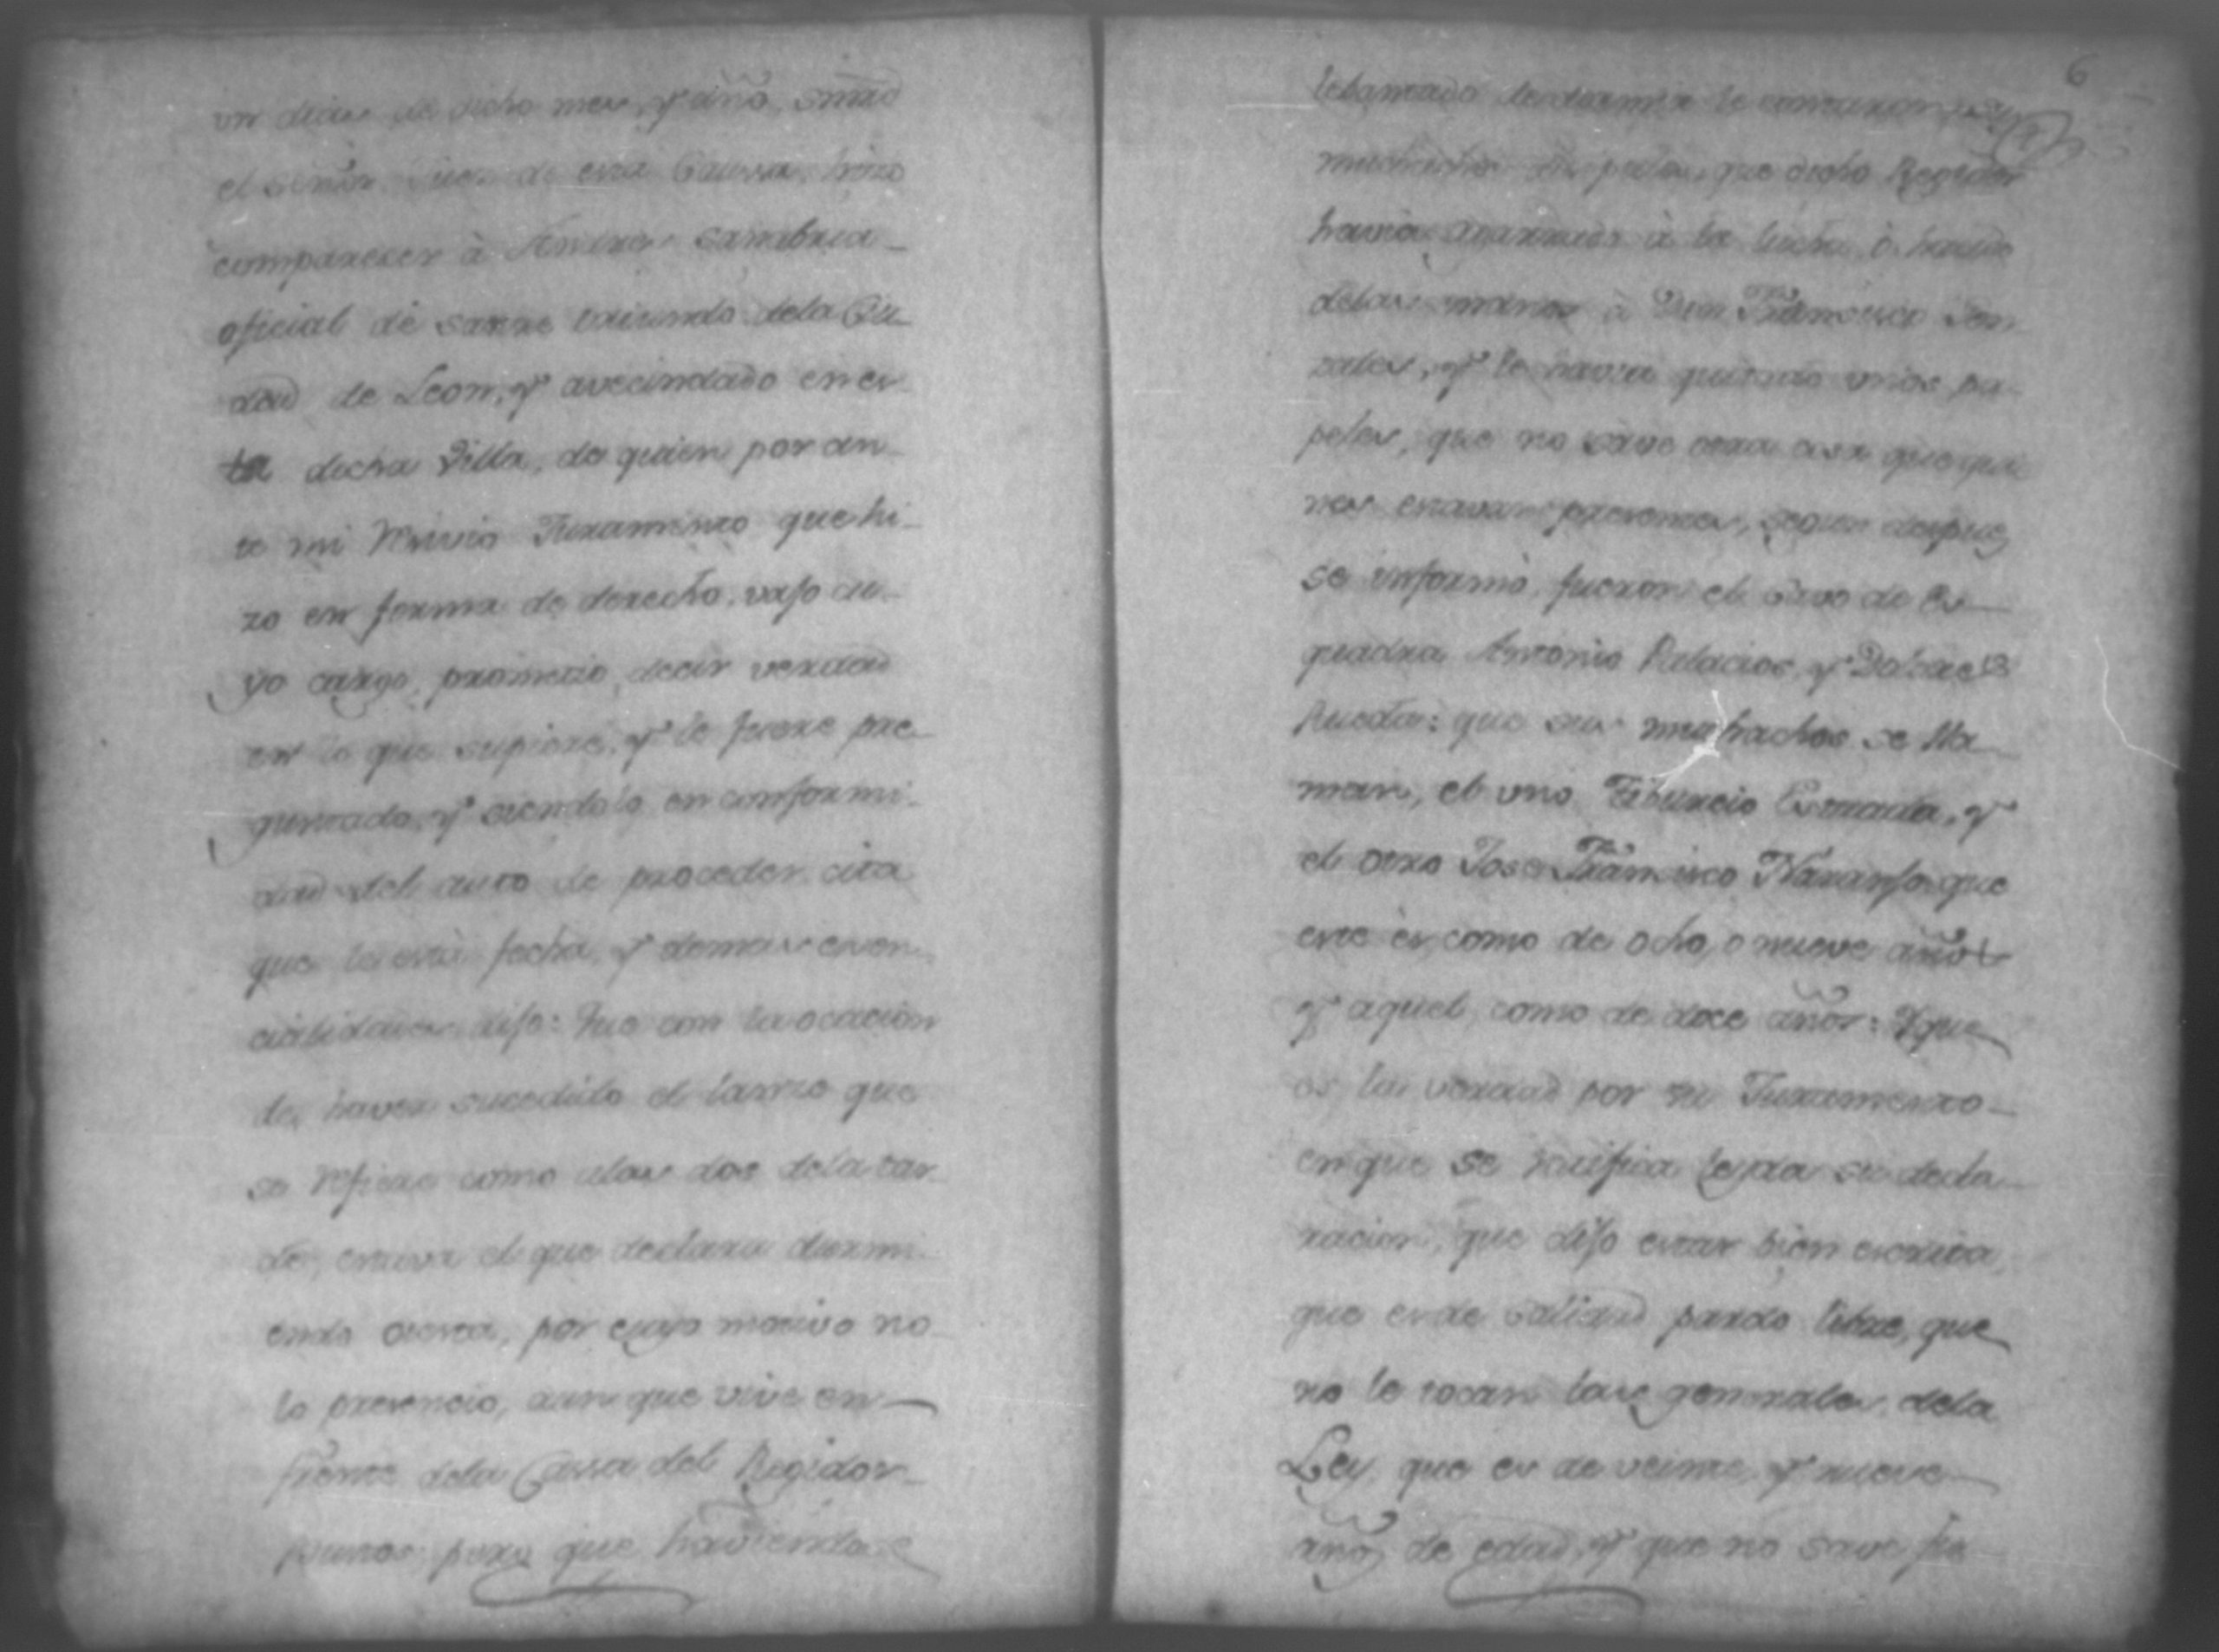 un dias de dicho mes, y año, smrd
el Señor Juez de esta Caussa, hizo
comparecer à Andres Sanabria
oficial de sastre oriundo dela Ciu_
dad de Leon, y avecindado en es_
ta dicha Villa, de quien por an_
te mi Resivio Juramento que hi_
zo en forma de derecho, vajo cu_
yo cargo, prometio decir verdad
en lo que supiere, y le fuere pre_
guntado, y siendolo en conformi_
dad del auto de proceder cita
que le está fecha, y demas esen_
cialidades dijo: Que con la ocacion
de haver sucedido el lanze que
se Refiere como alas dos dela tar_
de, estava el que declara durmi_
endo ciesta, por cuyo motivo no
lo presencio, aunque vive en_
frente dela Cassa del Regidor_
pero que haviendose
6
lebantado de dormir le contaron
muchachos que dicho Regidor
havia agarrado à la lucha, ò havido
delas manos à Don Francisco Gon
zales, y le havia quitado unos pa_
peles, que no save otra cosa que quie
nes estavan presentes, segun despues
se informó, fueron el Cavo de Es_
quadra Antonio Palacios, y
Rueda: que sus muchachos se lla_
man, el uno Tiburcio Estrada, y
el otro Jose Francisco Naranjo, que
este es como de ocho, o nueve años
y aquel, como de doce años: Y que
es la verdad por su Juramento_
en que se ratifica leyda su decla_
racion, que dijo estar bien escrita,
que es de calidad pardo libre, que
no le tocan las generales dela
Ley, que es de veinte, y nueve_
años de edad, y que no save fir